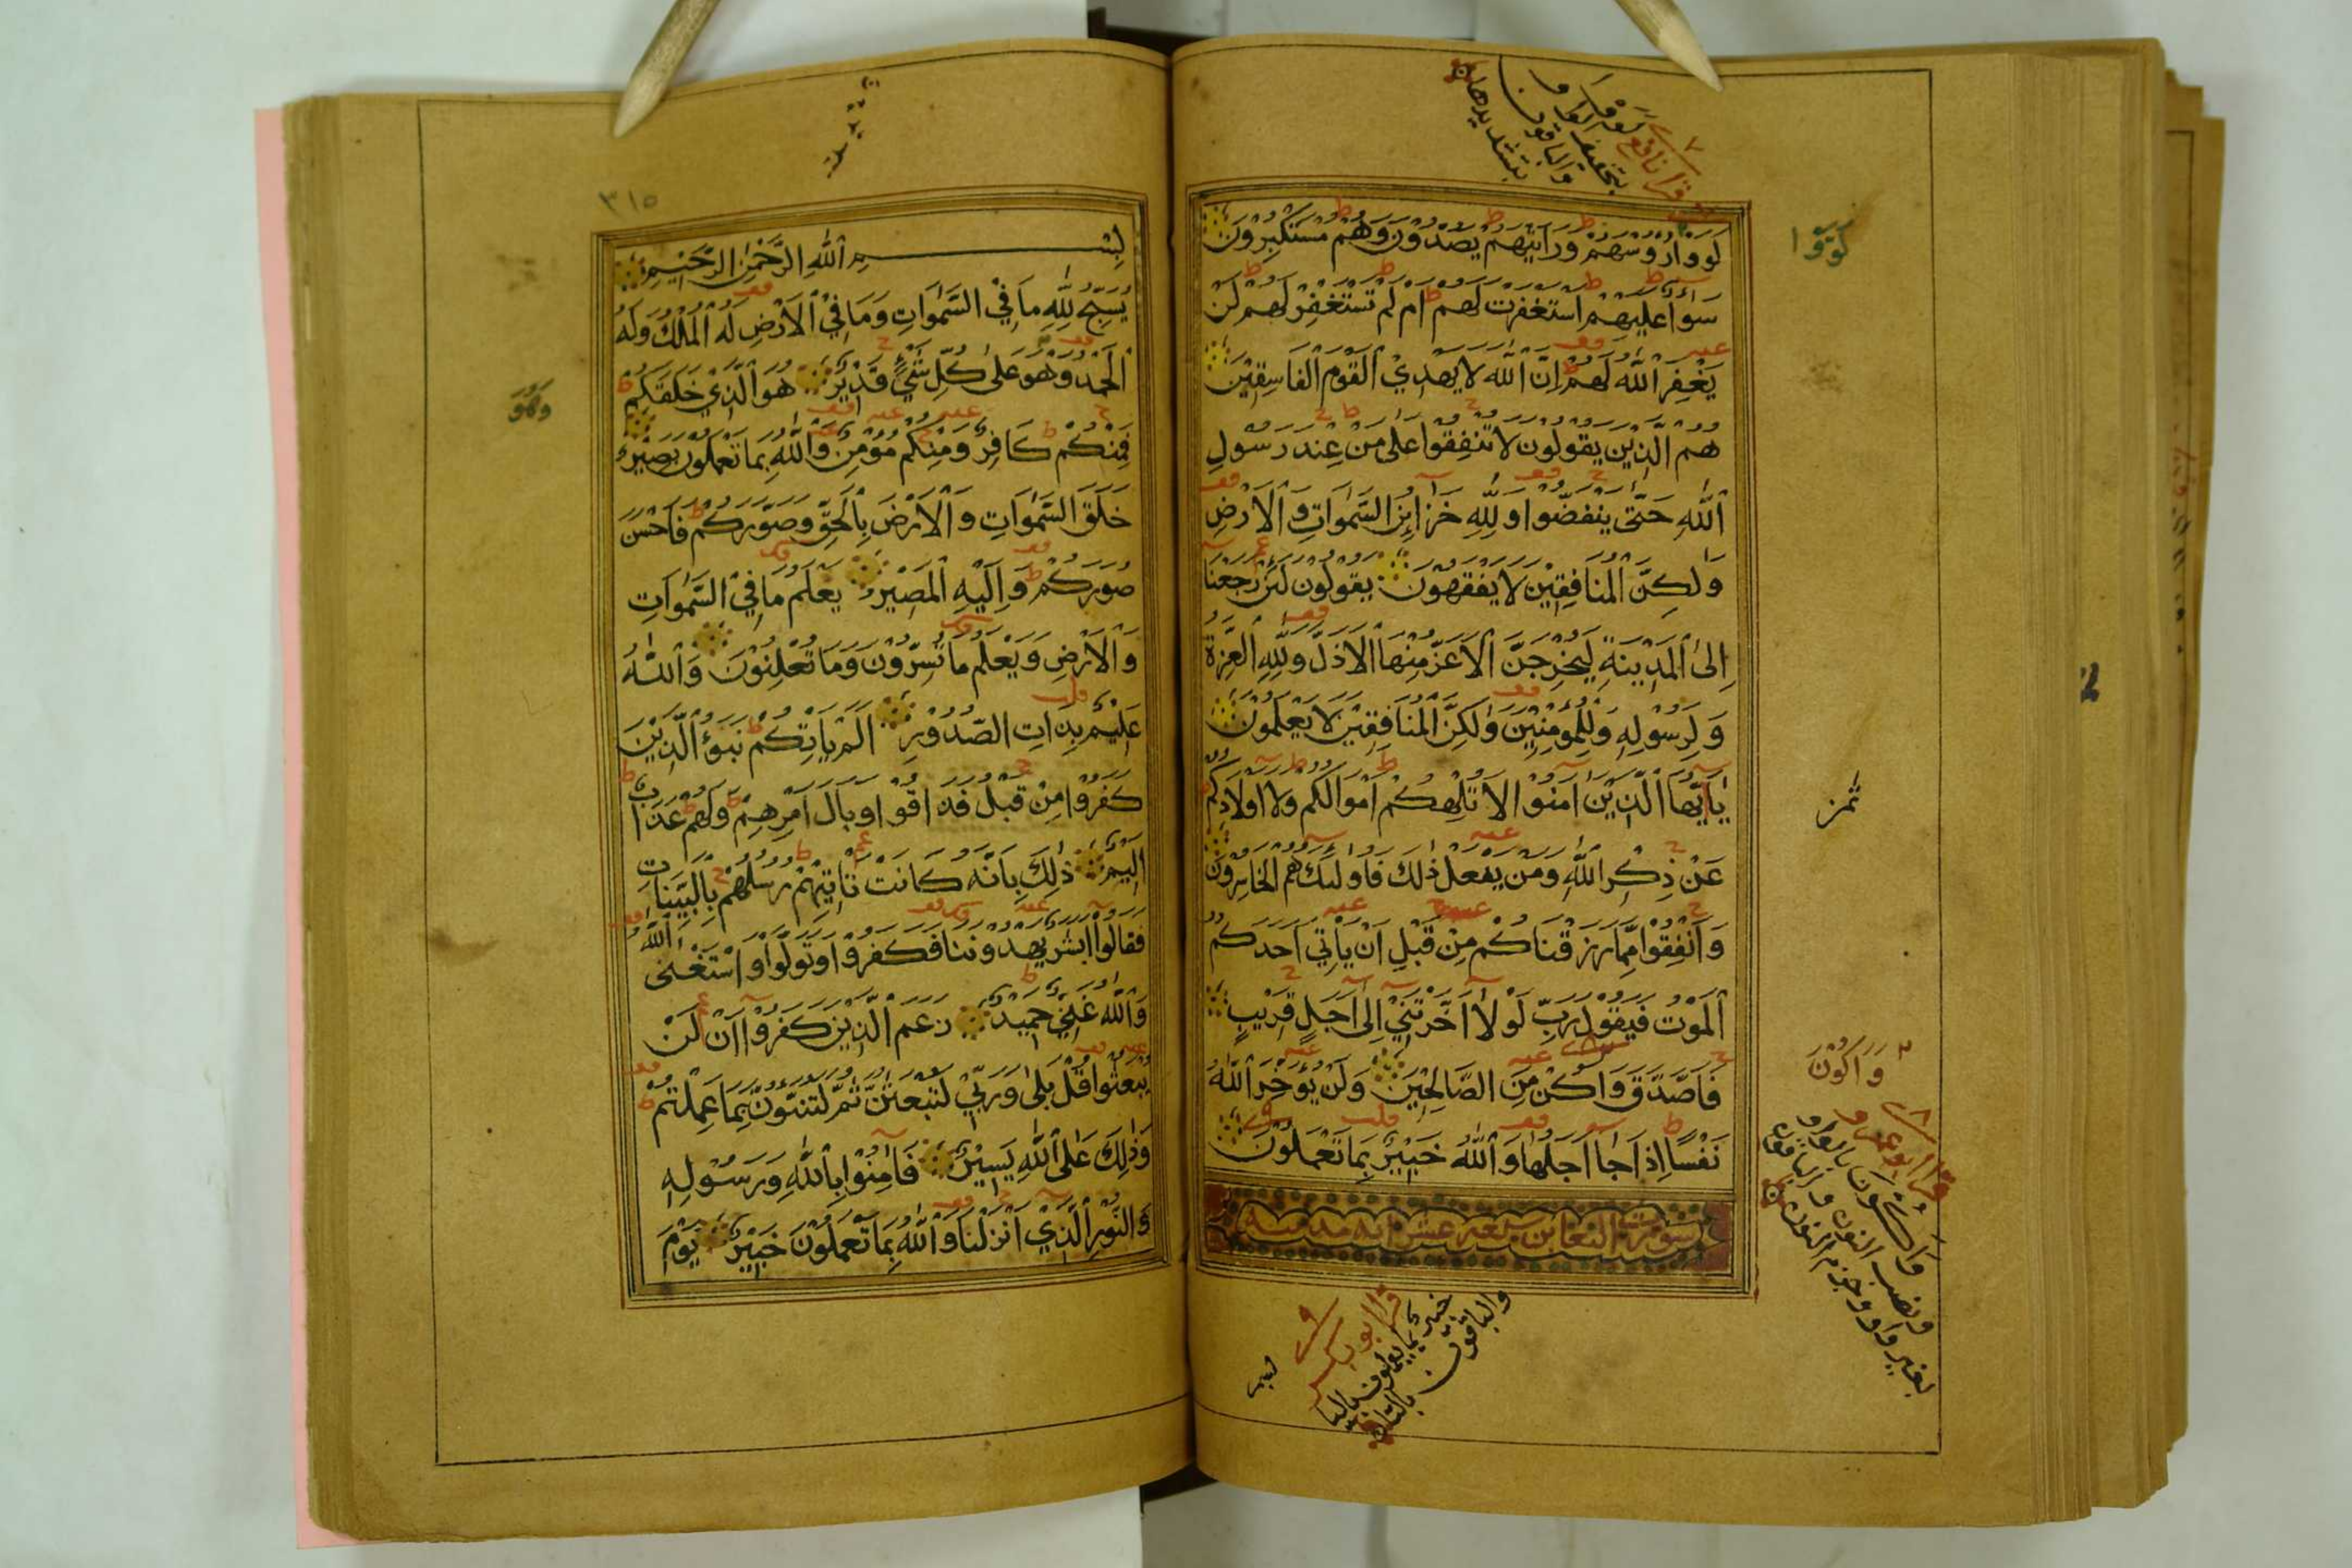 قرا نافع لووا
بتخفيف الواو
والباقون
بتشديدها
لَوَوْا
لَوَوْا رُءُوسَهُمْ وَرَأَيْتَهُمْ يَصُدُّونَ وَهُمْ مُسْتَكْبِرُونَ
سَوَاءٌ عَلَيْهِمْ أَسْتَغْفَرْتَ لَهُمْ أَمْ لَمْ تَسْتَغْفِرْ لَهُمْ لَنْ
يَغْفِرَ اللَّهُ لَهُمْ إِنَّ اللَّهَ لَا يَهْدِي الْقَوْمَ الْفَاسِقِينَ
هُمُ الَّذِينَ يَقُولُونَ لَا تُنْفِقُوا عَلَى مَنْ عِنْدَ رَسُولِ
اللَّهِ حَتَّى يَنْفَضُّوا وَلِلَّهِ خَزَائِنُ السَّمَوَاتِ وَالْأَرْضِ
وَلَكِنَّ الْمُنَافِقِينَ لَا يَفْقَهُونَ يَقُولُونَ لَئِنْ رَجَعْنَا
إِلَى الْمَدِينَةِ لَيُخْرِجَنَّ الْأَعَزُّ مِنْهَا الْأَذَلَّ وَلِلَّهِ الْعِزَّةُ
وَلِرَسُولِهِ وَلِلْمُؤْمِنِينَ وَلَكِنَّ الْمُنَافِقِينَ لَا يَعْلَمُونَ
يَا أَيُّهَا الَّذِينَ آمَنُوا لَا تُلْهِكُمْ أَمْوَالُكُمْ وَلَا أَوْلَادُكُمْ
ثمن
عَنْ ذِكْرِ اللَّهِ وَمَنْ يَفْعَلْ ذَلِكَ فَأُولَئِكَ هُمُ الْخَاسِرُونَ
وَأَنْفِقُوا مِمَّا رَزَقْنَاكُمْ مِنْ قَبْلِ أَنْ يَأْتِيَ أَحَدَكُمُ
الْمَوْتُ فَيَقُولَ رَبِّ لَوْلَا أَخَّرْتَنِي إِلَى أَجَلٍ قَرِيبٍ
فَأَصَّدَّقَ وَأَكُنْ مِنَ الصَّالِحِينَ وَلَنْ يُؤَخِّرَ اللَّهُ
نَفْسًا إِذَا جَا أَجَلُهَا وَاللَّهُ خَبِيرٌ بِمَا تَعْمَلُونَ
وَأَكُونَ
قرا ابو عمرو
وأكون بالواو
ونصب النون والباقون
بغير واو وجزم النون
سورة التغابن
قرا ابو بكر
خبير بما يعملون باليا
والباقون بالتا
٣١٥
بِسْمِ اللَّهِ الرَّحْمَنِ الرَّحِيمِ
يُسَبِّحُ لِلَّهِ مَا فِي السَّمَوَاتِ وَمَا فِي الْأَرْضِ لَهُ الْمُلْكُ وَلَهُ
الْحَمْدُ وَهُوَ عَلَى كُلِّ شَيْءٍ قَدِيرٌ هُوَ الَّذِي خَلَقَكُمْ
وَهْوَ
فَمِنْكُمْ كَافِرٌ وَمِنْكُمْ مُؤْمِنٌ وَاللَّهُ بِمَا تَعْمَلُونَ بَصِيرٌ
خَلَقَ السَّمَوَاتِ وَالْأَرْضَ بِالْحَقِّ وَصَوَّرَكُمْ فَأَحْسَنَ
صُوَرَكُمْ وَإِلَيْهِ الْمَصِيرُ يَعْلَمُ مَا فِي السَّمَوَاتِ
وَالْأَرْضِ وَيَعْلَمُ مَا تُسِرُّونَ وَمَا تُعْلِنُونَ وَاللَّهُ
عَلِيمٌ بِذَاتِ الصُّدُورِ أَلَمْ يَأْتِكُمْ نَبَؤُا الَّذِينَ
كَفَرُوا مِنْ قَبْلُ فَذَاقُوا وَبَالَ أَمْرِهِمْ وَلَهُمْ عَذَابٌ
أَلِيمٌ ذَلِكَ بِأَنَّهُ كَانَتْ تَأْتِيهِمْ رُسُلُهُمْ بِالْبَيِّنَاتِ
فَقَالُوا أَبَشَرٌ يَهْدُونَنَا فَكَفَرُوا وَتَوَلَّوْا وَاسْتَغْنَى اللَّهُ
وَاللَّهُ غَنِيٌّ حَمِيدٌ زَعَمَ الَّذِينَ كَفَرُوا أَنْ لَنْ
يُبْعَثُوا قُلْ بَلَى وَرَبِّي لَتُبْعَثُنَّ ثُمَّ لَتُنَبَّؤُنَّ بِمَا عَمِلْتُمْ
وَذَلِكَ عَلَى اللَّهِ يَسِيرٌ فَآمِنُوا بِاللَّهِ وَرَسُولِهِ
وَالنُّورِ الَّذِي أَنْزَلْنَا وَاللَّهُ بِمَا تَعْمَلُونَ خَبِيرٌ يَوْمَ